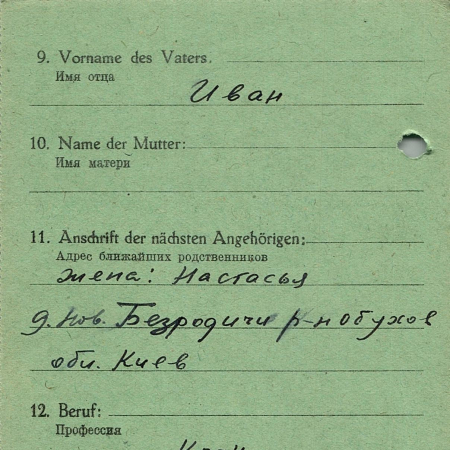 9. Vorname des Vaters.
Имя отца
Иван
10. Name der Mutter:
Имя матери
11. Anschrift der nächsten Angehörigen:
Адрес ближайших родственников
жена: Настасья
д. Нов. Безродичи р-н обухов
обл. Киев
12. Beruf:
Профессия